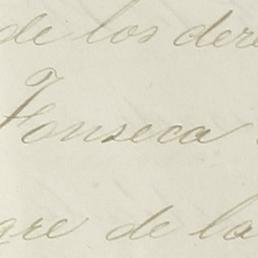 de los dere
Fonseca
gre de la